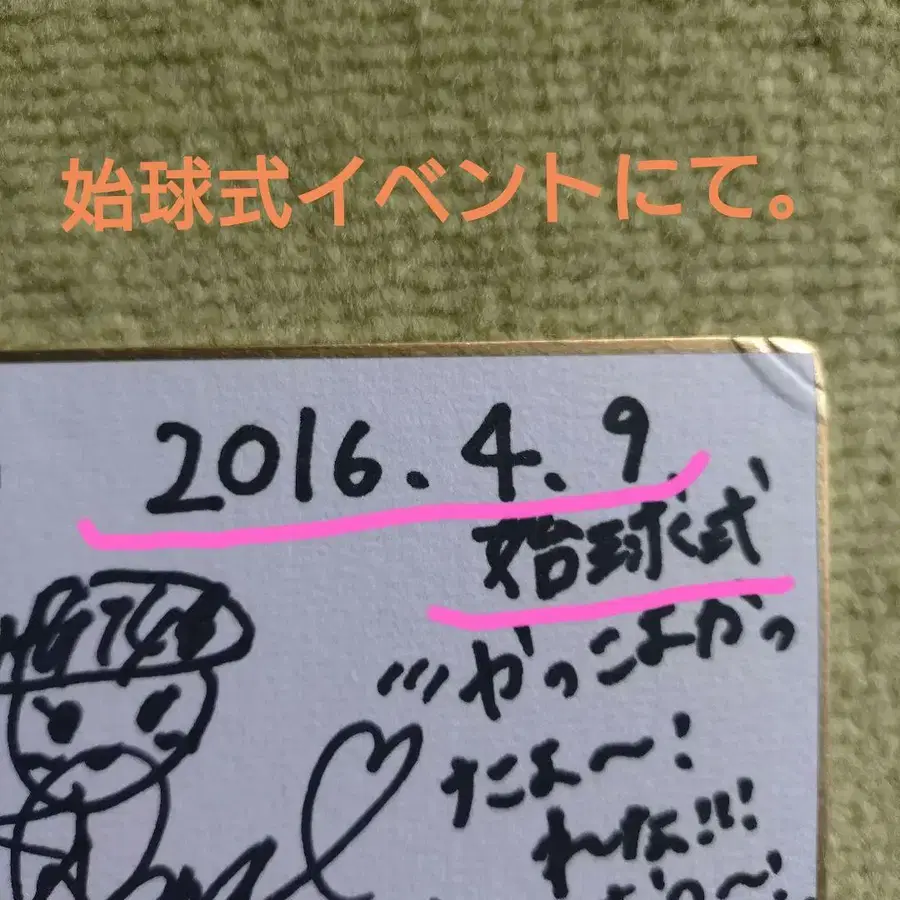 始球式イベントにて。
2016.4.9.
始球式
かっこよかっ
たよ〜!
れなぁ!!!